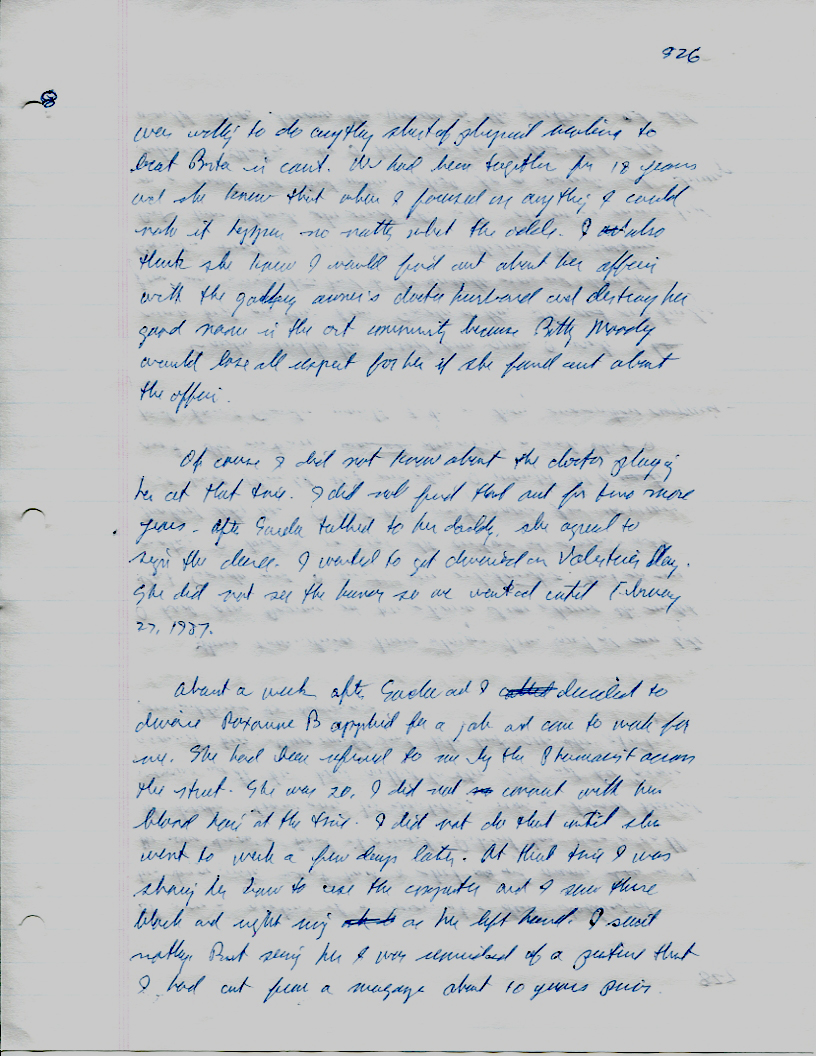 926
8
was willing to do anything short of physical violence to
beat Brita in court. We had been together for 18 years
and she knew that when I focused on anything I could
make it happen no matter what the odds. I also
think she knew I would find out about her affair
with the gallery owner's doctor husband and destroy her
good name in the art community because Betty Moody
would lose all respect for her if she found out about
the affair.
Of course I did not know about the doctor playing
her at that time. I did not find that out for two more
years. After talked to her daddy, she agreed to
sign the decree. I wanted to get divorced on Valentine's Day.
She did not see the humor so we waited until February
27, 1987.
About a week after and I decided to
divorce Roxanne B applied for a job and came to work for
me. She had been referred to me by the Pharmacist across
the street. She was 20, I did not connect with her
blond hair at the time. I did not do that until she
went to work a few days later. At that time I was
showing her how to use the computer and I saw three
black and ring on her left hand. I said
nothing. But seeing her I was reminded of a picture that
I had cut from a magazine about 10 years prior.